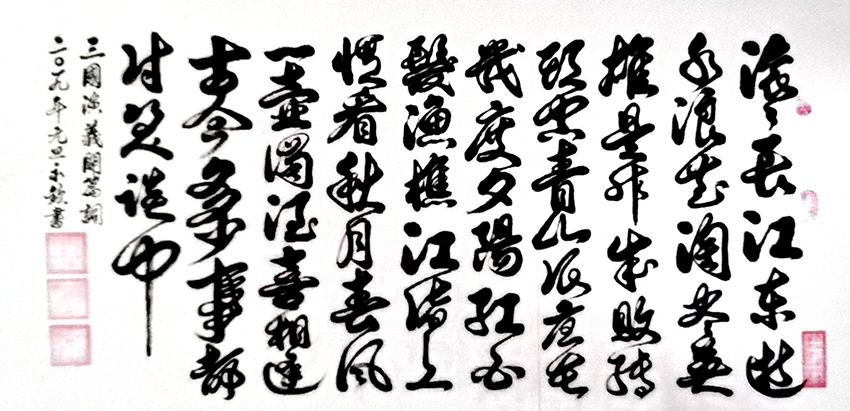 滚滚长江东逝
水浪花淘尽英
雄是非成败转
头空青山依旧在
幾度夕陽红白
髮漁樵江渚上
惯看秋月春风
一壺濁酒喜相逢
古今多少事都
付笑谈中
三國演義開篇詞
二〇一九年元旦書